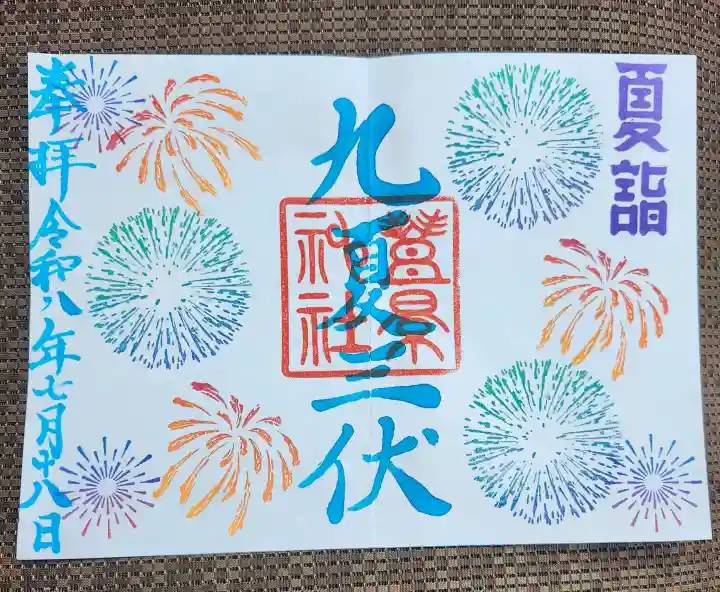 夏詣
九夏三伏
神社
奉拝 令和八年七月十八日